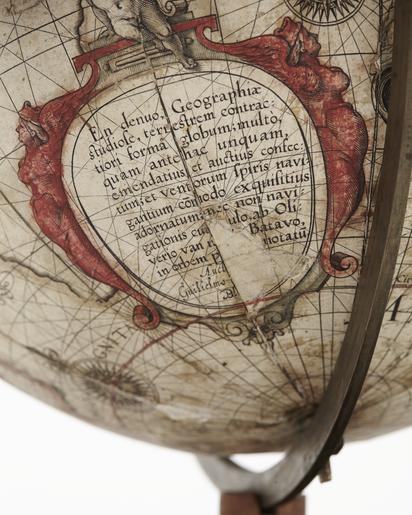 En denuo, Geographiæ
studiose, terrestrem contrac:
tiori forma globum, multo,
quam antehac unquam,
emendatius et auctius confec:
tum, et ventorum spiris navi
gantium commodo exquisitius
adornatum: nec non navi
gationis cu ulo, ab Oli
verio van Batavo,
in orbem notatū
Auct
Guilielmo
MAGNETI
A